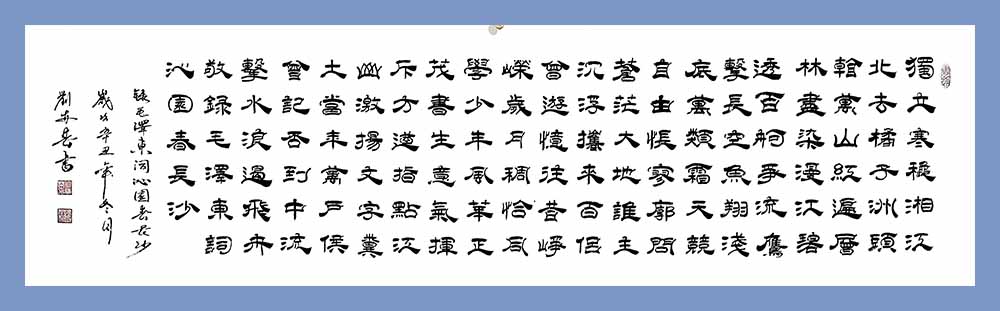 獨立寒穐湘江
北去橘子洲頭
看萬山紅遍層
林盡染漫江碧
透百舸爭流鷹
擊長空魚翔淺
底萬類霜天競
自由悵寥廓問
蒼茫大地誰主
沉浮攜來百侶
曾遊憶往昔崢
嶸歲月稠恰同
學少年風華正
茂書生意氣揮
斥方遒指點江
山激揚文字糞
土當年萬戶侯
曾記否到中流
擊水浪遏飛舟
敬錄毛澤東詞
沁園春長沙
錄毛澤東詞沁園春長沙
歲次辛丑年冬月
劉春書